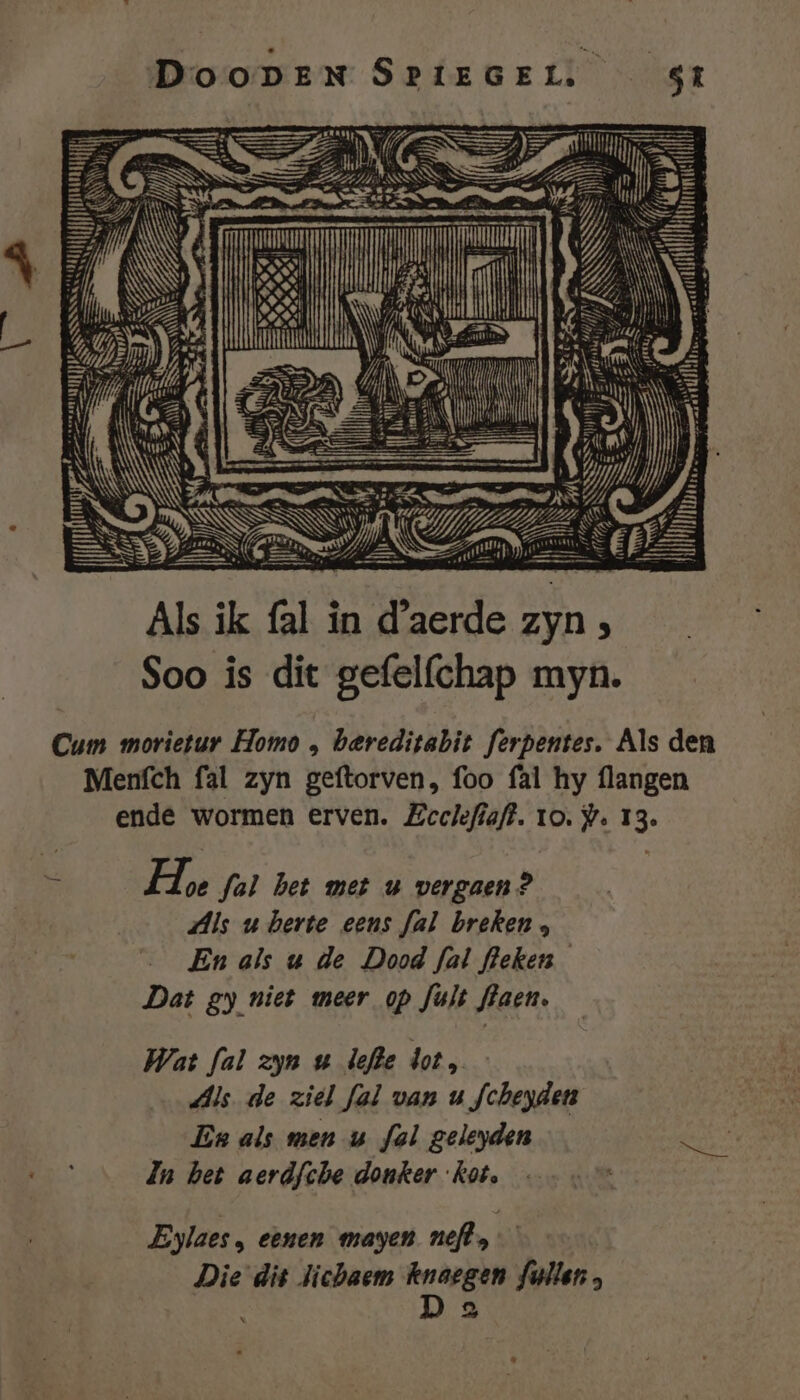 DOODEN SPIEGEL. 51
Als ik ſal in d'aerde zyn,
Soo is dit geſelſchap myn.
Cum morietur Homo, hæreditabit ſerpentes. Als den
Menſch ſal zyn geſtorven, ſoo ſal hy ſlangen
ende wormen erven. Eccleſiaſt. 10. ℣. 13.
Hoe ſal het met u vergaen?
Als u herte eens ſal breken,
En als u de Dood ſal ſteken
Dat gy niet meer op ſult ſtaen.
Wat ſal zyn u leſte lot,
Als de ziel ſal van u ſcheyden
En als men u ſal geleyden
In het aerdſche donker kot.
Eylaes, eenen mayen neſt,
Die dit lichaem knaegen ſullen,
D 2